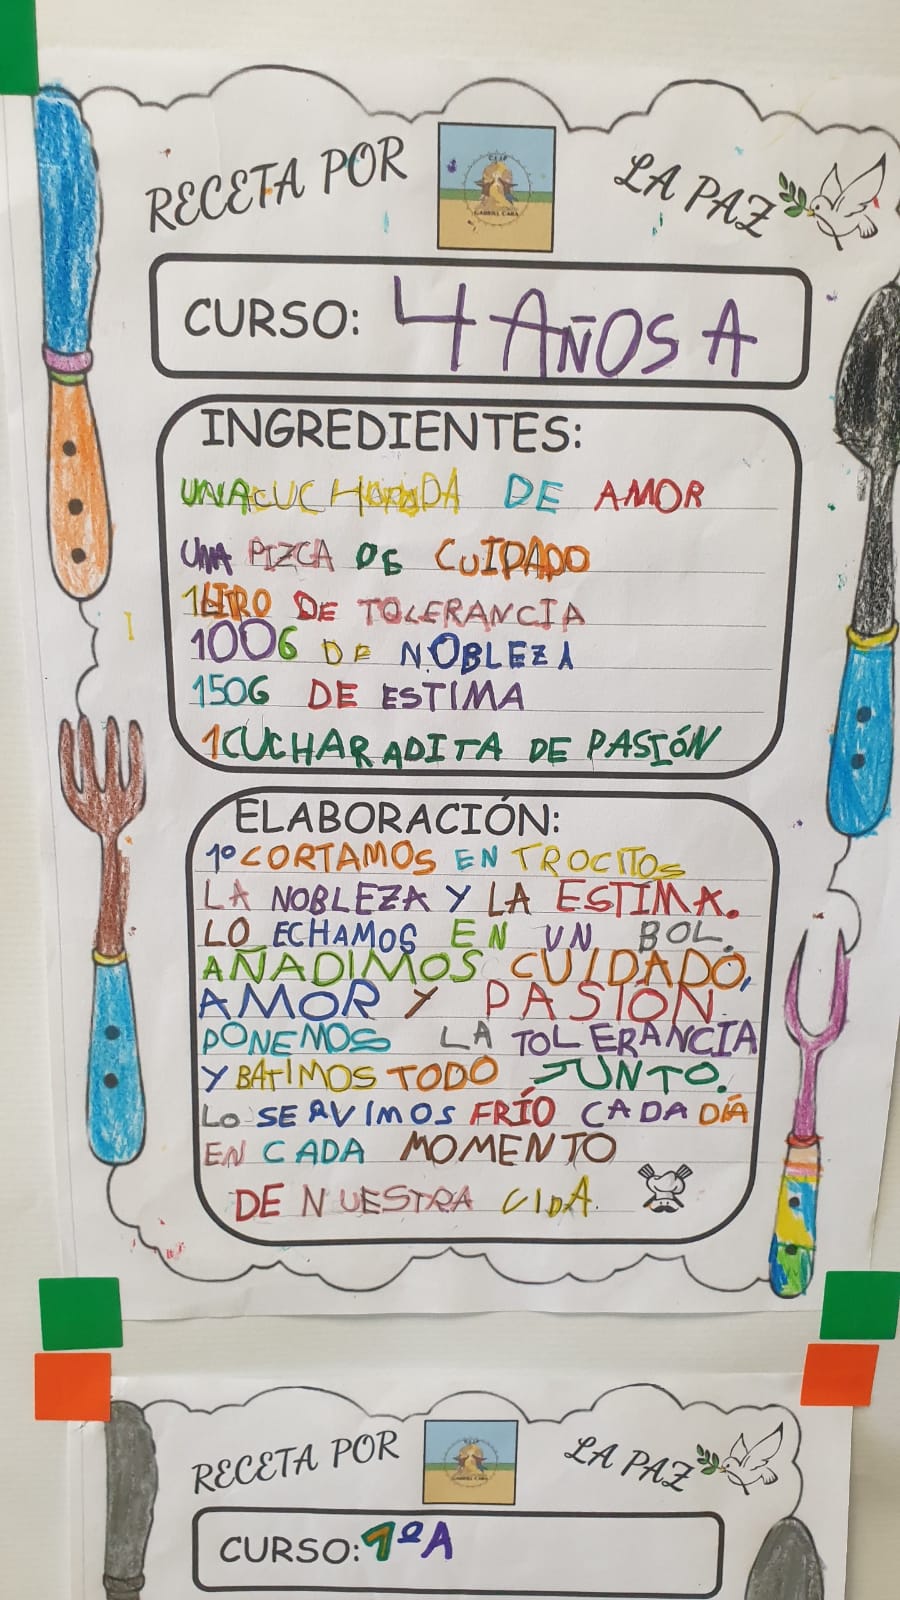 RECETA POR
LA PAZ
GABRIEL CARA
CURSO: 4 AÑOS A
INGREDIENTES:
UNA CUCHARADA DE AMOR
UNA PIZCA DE CUIDADO
1 LITRO DE TOLERANCIA
100G DE NOBLEZA
150G DE ESTIMA
1 CUCHARADITA DE PASIÓN
ELABORACIÓN:
1º CORTAMOS EN TROCITOS
LA NOBLEZA Y LA ESTIMA.
LO ECHAMOS EN UN BOL.
AÑADIMOS CUIDADO,
AMOR Y PASIÓN.
PONEMOS LA TOLERANCIA
Y BATIMOS TODO JUNTO.
LO SERVIMOS FRÍO CADA DÍA
EN CADA MOMENTO
DE NUESTRA VIDA.
RECETA POR
LA PAZ
GABRIEL CARA
CURSO: 1º A